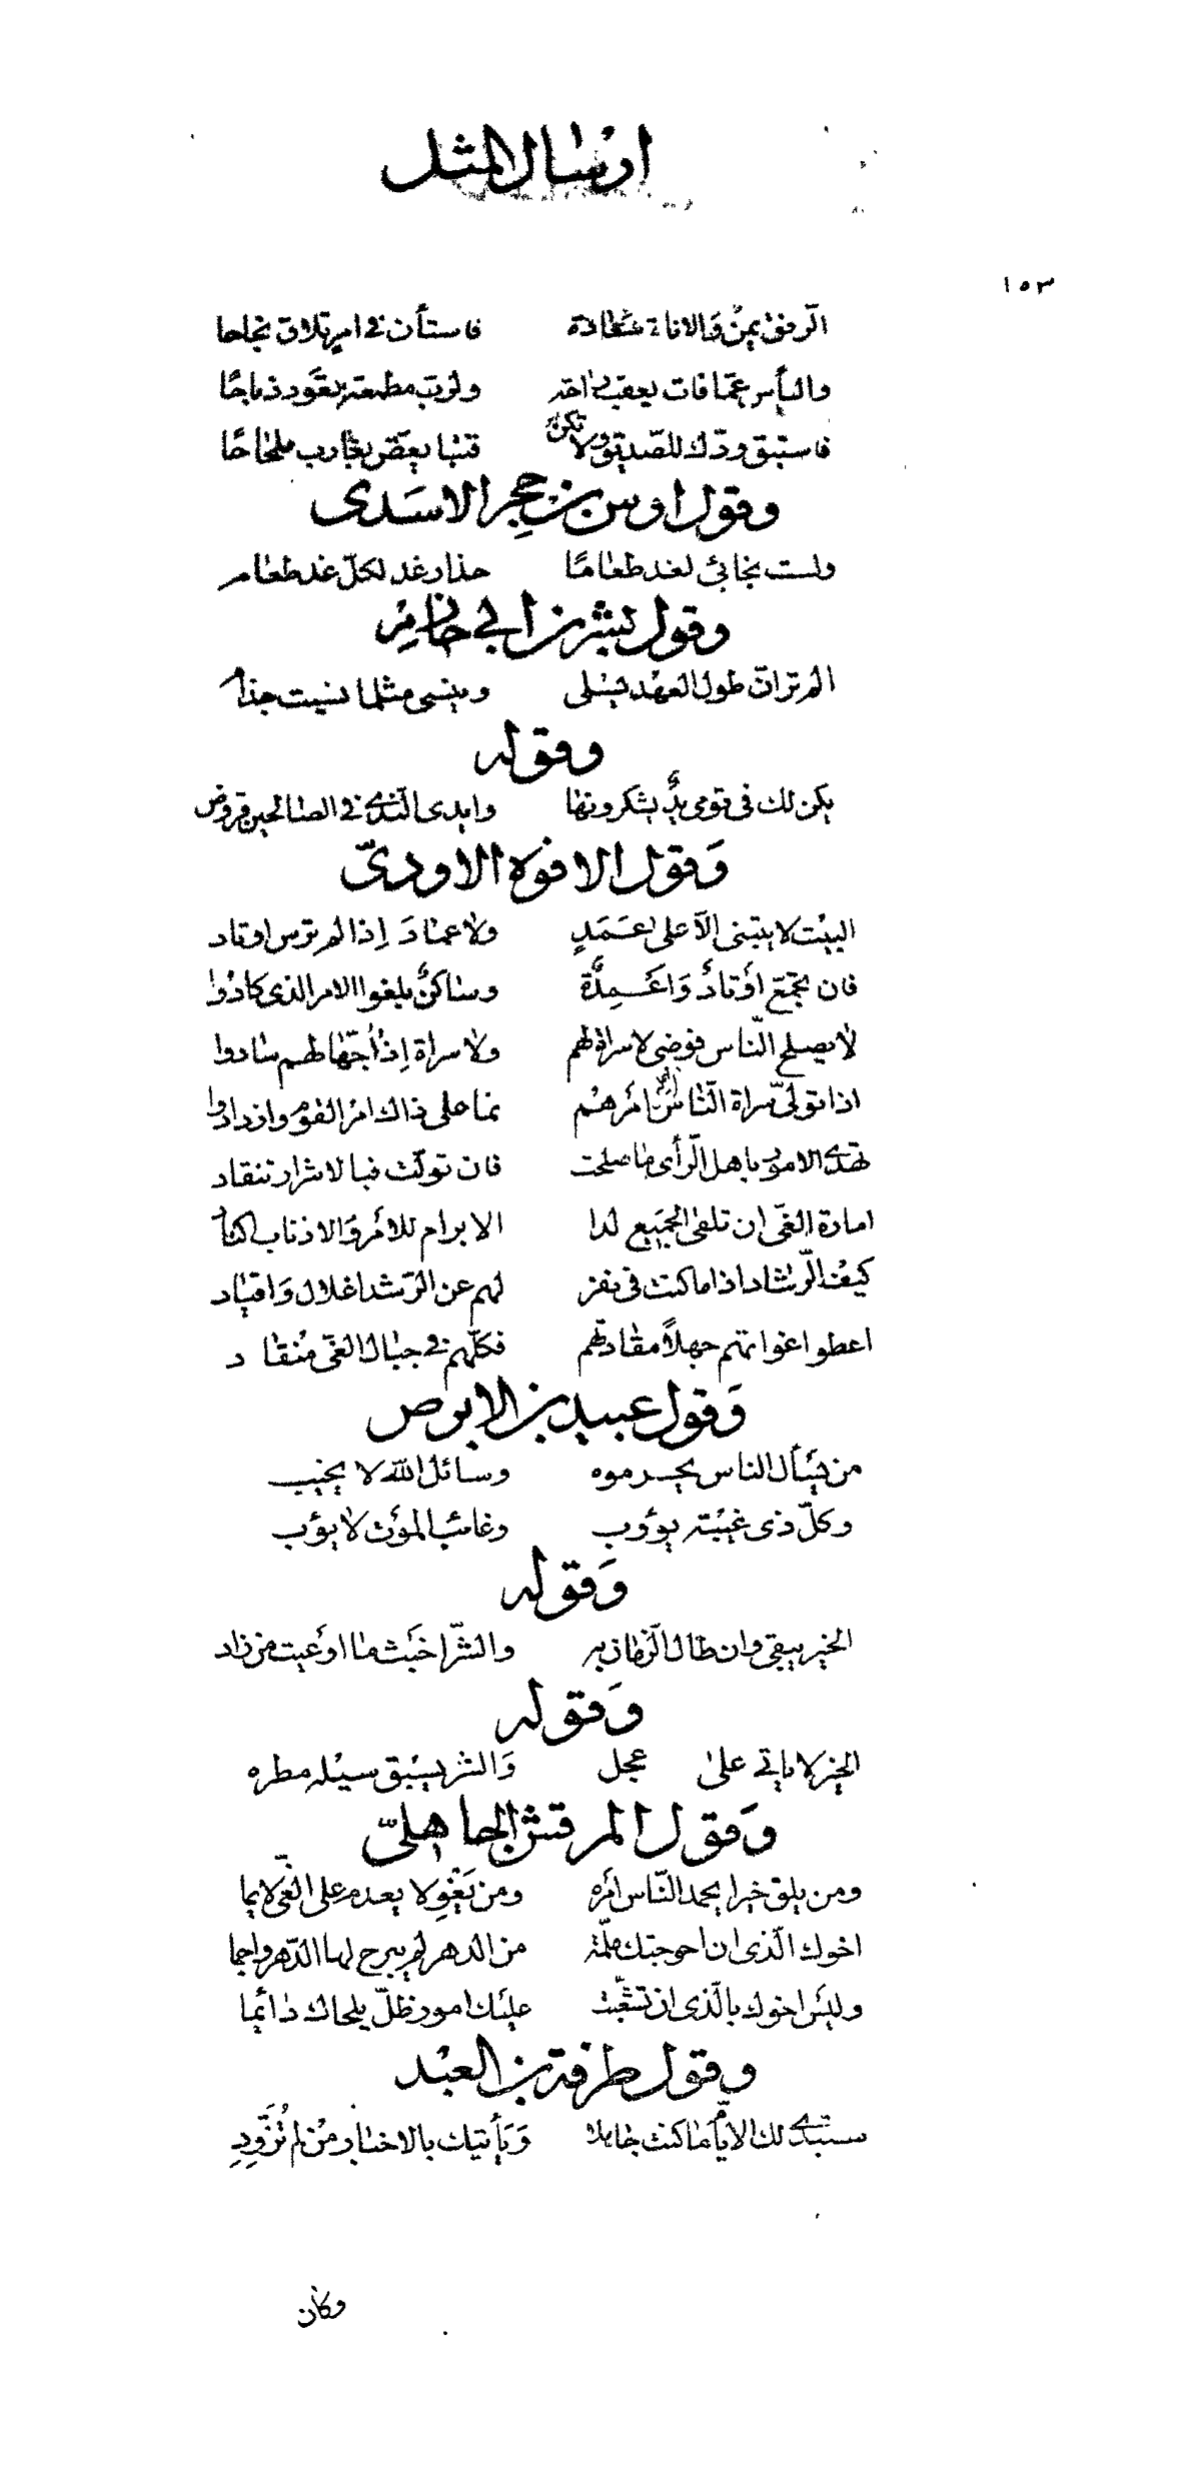 ارسال المثل
١٥٣
الرّفق يمنٌ وَالاناة سَعادة فاستأن في امرٍ تلاق نجاحا
واليأس عمّا فات يعقب راحة ولربّ مطعمة تعَود ذباحًا
فاستبق ودّك للصّديق ولا تكن قتبا يعَضّ بغارب ملحاحًا
وقول اوس بن حجِر الاسَدى
ولست بخابئ لغد طعامًا حذار غد لكلّ غد طعام
وقول بشر بن ابي خازم
الم تر انّ طول العهد يسلى وينسى مثلما نسيت جذام
وقوله
يكن لك في قومى يدٌ يشكرونها وايدى النّدى في الصالحين قروض
وَقول الافوه الاودىّ
البيْت لا يبتنى الّا على عَمَدٍ ولا عمادَ اِذا لم ترس اوتاد
فان تجمّع أوتادٌ وَاعَمِدَةٌ وساكنٌ بلغوا الامر الذى كادُوا
لا يصلح النّاس فوضى لا سراة لهم ولا سراة اِذا جهّالهم سَادوا
اذا تولّى سراة النّاس امرهُم نما على ذاك امرُ القوم وازدادوا
تهدى الامور باهل الرّأى ما صلحت فان تولّت فبالاشرار تنقاد
امارة الغىّ ان تلقى الجمَيع لدا الابرام للامر وَالاذناب اكتاد
كيف الرّشاد اذا ما كنت في نفر لهم عن الرّشد اغلال وَاقياد
اعطوا غواتهم جهلاً مقادتهم فكلّهم في حبال الغىّ مُنقاد
وَقول عبيد بن الابرص
من يَسأل الناس يحرموه وسائل اللّه لا يخيب
وكلّ ذى غيْبة يؤوب وغائب الموت لا يؤب
وَقوله
الخير يبقى وان طال الزّمان به والشّر اخبَث ما اوعَيت من زاد
وَقوله
الخير لا ياتي على عجل وَالشر يسبق سيْله مطره
وَقول المرقش الجاهلىّ
ومن يلق خيرا يحمد النّاس امره ومن يَغْوِ لا يعدم على الغىّ لايما
اخوك الّذى ان احوجتك ملمّة من الدهر لم يبرح لها الدّهر واجما
وليْسَ اخوك بالّذى ان تشعّبت عليْك امور ظلّ يلحاك دائما
وقول طرفة بن العبْد
ستبدى لك الايّام ما كنت جاهلا وَيَأتيك بالاخبار مَنْ لم تُزَوِّدِ
وكان